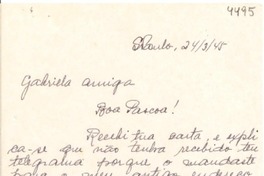 4495
S. Paulo, 24/3/45
Gabriela amiga
Boa Pascoa!
Recebi tua carta, e expli
ca-se que não tenha recebido teu
telegrama porque o mandaste
para o meu antigo endereço